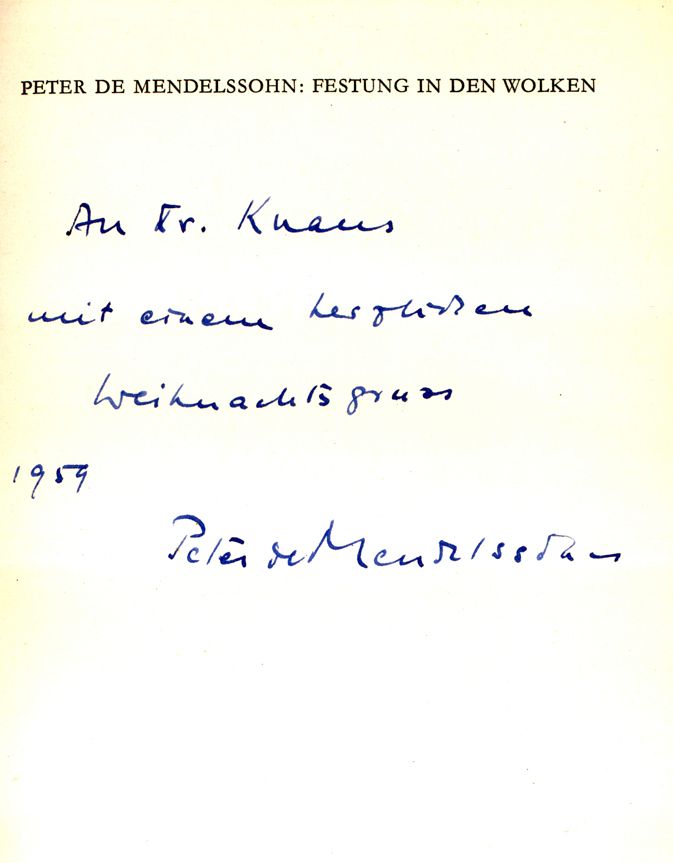 PETER DE MENDELSSOHN: FESTUNG IN DEN WOLKEN
An Dr. Knaus
mit einem herzlichen
Weihnachtsgruss
1959
Peter de Mendelssohn